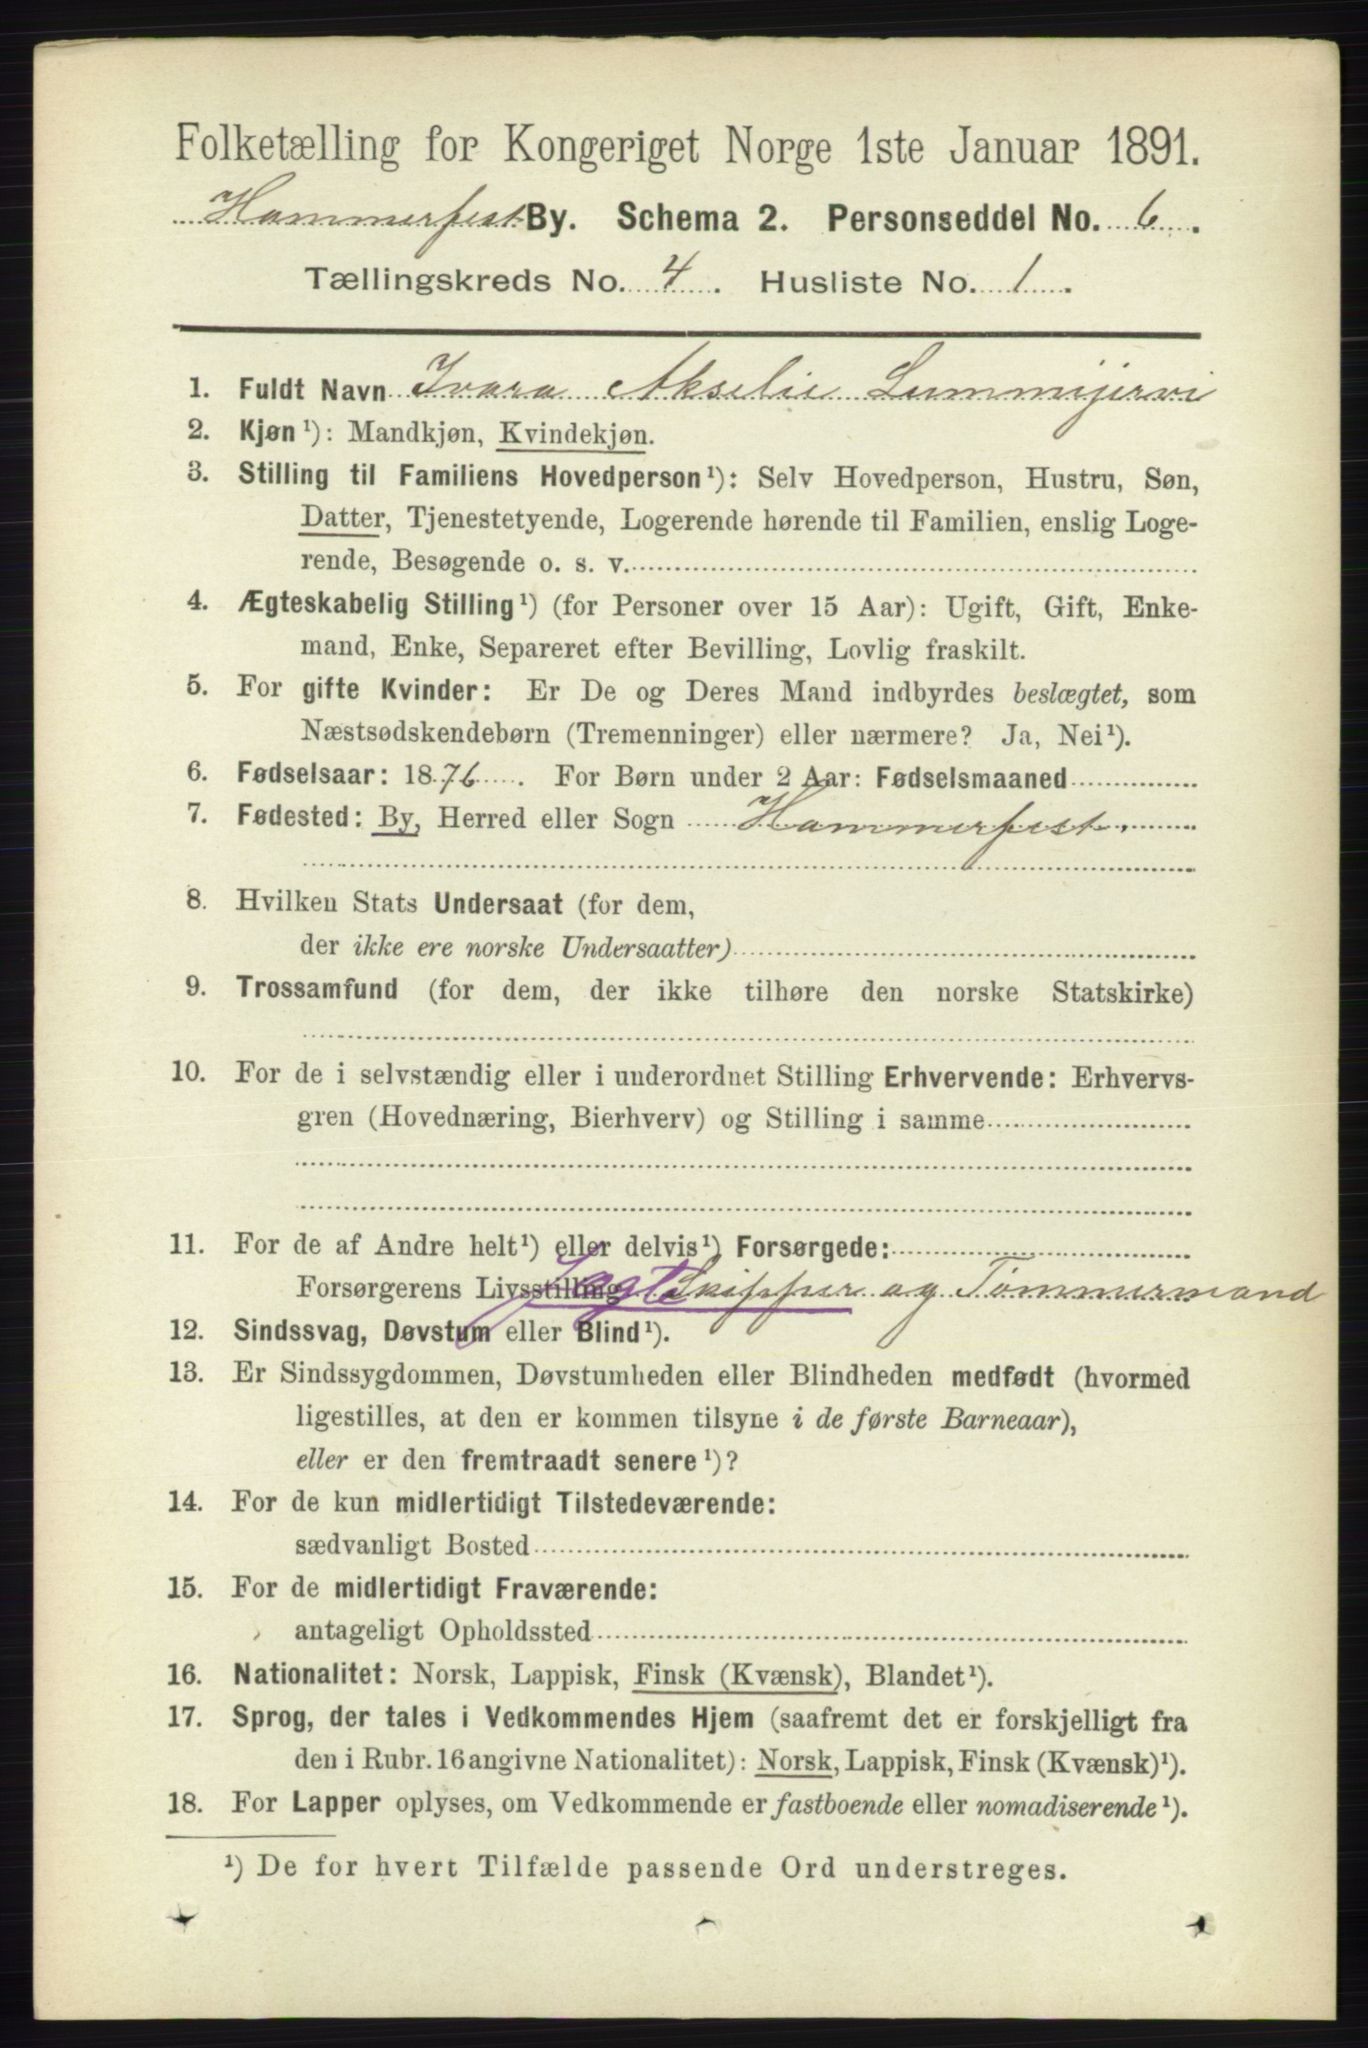 Folketælling for Kongeriget Norge 1ste Januar 1891.
Hammerfest By. Schema 2. Personseddel No. 6.
Tællingskreds No. 4. Husliste No. 1.
1. Fuldt Navn Ivara Akselie Lummijervi
2. Kjøn¹): Mandkjøn, Kvindekjøn.
3. Stilling til Familiens Hovedperson¹): Selv Hovedperson, Hustru, Søn,
Datter, Tjenestetyende, Logerende hørende til Familien, enslig Loge-
rende, Besøgende o. s. v.
4. Ægteskabelig Stilling¹) (for Personer over 15 Aar): Ugift, Gift, Enke-
mand, Enke, Separeret efter Bevilling, Lovlig fraskilt.
5. For gifte Kvinder: Er De og Deres Mand indbyrdes beslægtet, som
Næstsødskendebørn (Tremenninger) eller nærmere? Ja, Nei¹).
6. Fødselsaar: 1876. For Børn under 2 Aar: Fødselsmaaned
7. Fødested: By, Herred eller Sogn Hammerfest.
8. Hvilken Stats Undersaat (for dem,
der ikke ere norske Undersaatter)
9. Trossamfund (for dem, der ikke tilhøre den norske Statskirke)
10. For de i selvstændig eller i underordnet Stilling Erhvervende: Erhvervs-
gren (Hovednæring, Bierhverv) og Stilling i samme
11. For de af Andre helt¹) eller delvis¹) Forsørgede:
Forsørgerens Livsstilling Jagte Skipper og Tømmermand
12. Sindssvag, Døvstum eller Blind¹).
13. Er Sindssygdommen, Døvstumheden eller Blindheden medfødt (hvormed
ligestilles, at den er kommen tilsyne i de første Barneaar),
eller er den fremtraadt senere¹)?
14. For de kun midlertidigt Tilstedeværende:
sædvanligt Bosted
15. For de midlertidigt Fraværende:
antageligt Opholdssted
16. Nationalitet: Norsk, Lappisk, Finsk (Kvænsk), Blandet¹).
17. Sprog, der tales i Vedkommendes Hjem (saafremt det er forskjelligt fra
den i Rubr. 16 angivne Nationalitet): Norsk, Lappisk, Finsk (Kvænsk)¹).
18. For Lapper oplyses, om Vedkommende er fastboende eller nomadiserende¹).
¹) De for hvert Tilfælde passende Ord understreges.